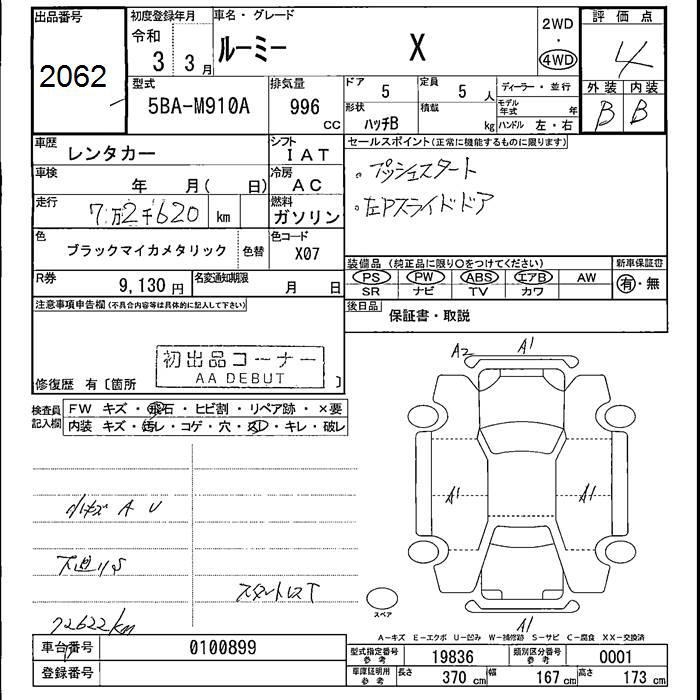 出品番号 初度登録年月 車名・グレード 2WD 評価点
2062 令和 3 3月 ルーミー X ・ 4WD 4
型式 排気量 ドア 定員 ディーラー・並行 外装 内装
5BA-M910A 996 cc 5 5 人 モデル年式 年 B B
形状 積載
ハッチB kg ハンドル 左・右
車歴 レンタカー シフト IAT セールスポイント(正常に機能するものに限ります)
車検 年 月( 日) 冷房 AC 。プッシュスタート
走行 7万2千620 km 燃料 ガソリン 。左Pスライドドア
色 ブラックマイカメタリック 色替 色コード X07
装備品 (純正品に限り○をつけてください) 新車保証書
R券 9,130円 名変通知期限 月 日 PS PW ABS エアB AW 有・無
SR ナビ TV カワ
注意事項申告欄(不具合内容等は具体的に記入して下さい) 後日品 保証書・取説
初出品コーナー
AA DEBUT
修復歴 有〔箇所 〕
検査員記入欄 FW キズ・飛石・ヒビ割・リペア跡・×要
内装 キズ・汚レ・コゲ・穴・スレ・キレ・破レ
A2 A1
A1 A1
小キズ A U
下廻りS
スタットレスT
72622km
スペア
A1
A-キズ E-エクボ U-凹み W-補修跡 S-サビ C-腐食 XX-交換済
車台番号 0100899 型式指定番号 参考 19836 類別区分番号 参考 0001
登録番号 車庫証明用 参考 長さ 370 cm 幅 167 cm 高さ 173 cm